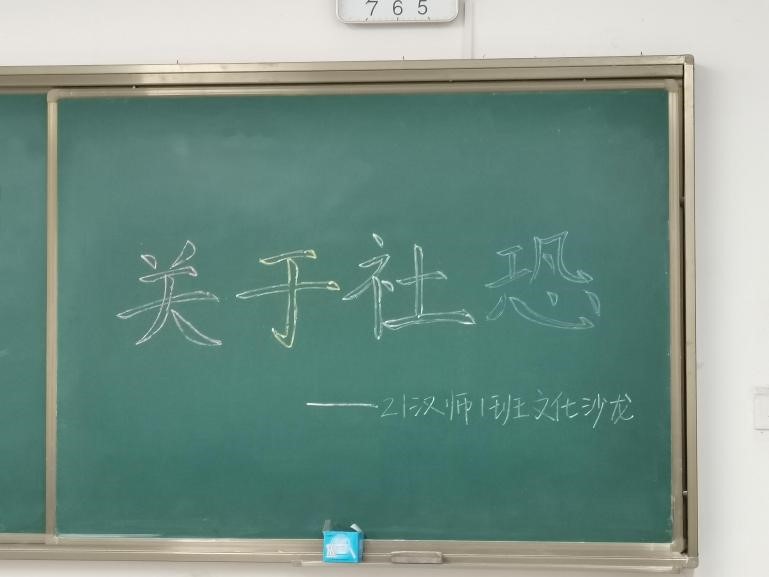 7 6 5
关于社恐
——21汉师1班文化沙龙